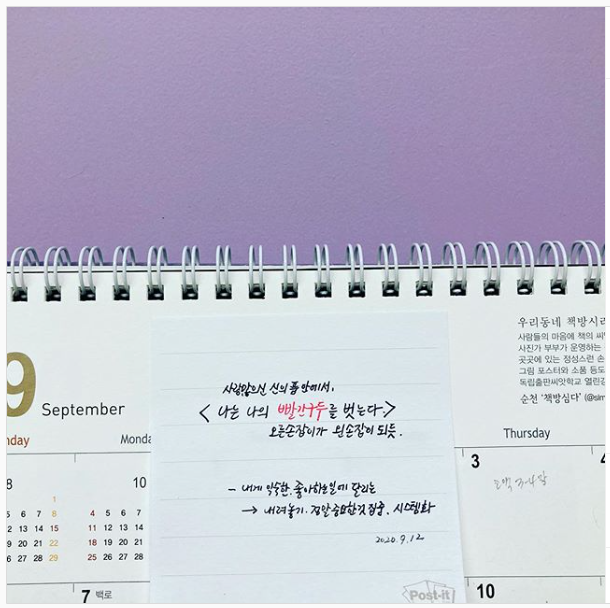 우리동네 책방시리
사람들의 마음에 책의 씨
사진가 부부가 운영하는
곳곳에 있는 정성스런 손
그림 포스터와 소품 등도
독립출판씨앗학교 열린강
순천 '책방심다' (@sim
9
September
nday
Monda
Thursday
< 나는 나의 빨간구두를 벗는다.>
오른손잡이가 왼손잡이 되듯.
- 내게 익숙한, 좋아하는일에 달리는
→ 내려놓기. 정말중요한것 집중. 시스템화
2020. 9. 12
8
10
1
5 6 7 8
12 13 14 15
19 20 21 22
26 27 28 29
4 5 6 7 8 9
11 12 13 14 15
18 19 20 21 22
25 26 27 28 29
3
4
7 백로
10
Post-it